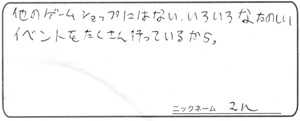 他のゲームショップにはない、いろいろなたのしい
イベントをたくさん行っているから。
ニックネーム